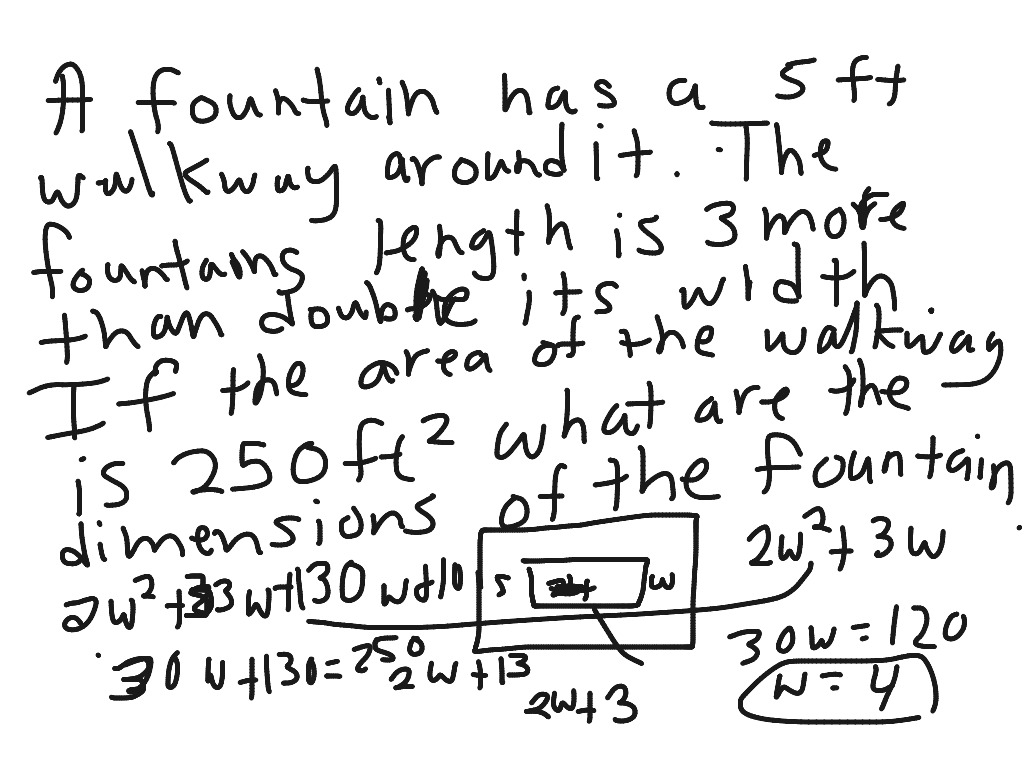 A fountain has a 5ft
walkway around it. The
fountains length is 3 more
than double its width
If the area of the walkway.
is 250ft² what are the
dimensions of the fountain.
2w²+3w
2w²+33w+130 w+10 5 w
30w+130=250
2w+13
2w+3
30w=120
w=4